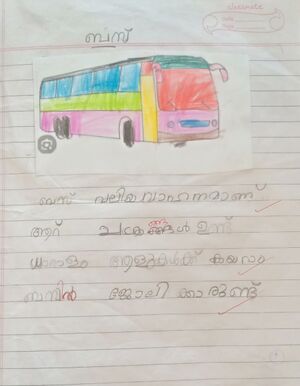 classmate
Date
Page
ബസ്
ബസ് വലിയ വാഹനമാണ്
ആറ് ചക്രങ്ങൾ ഉണ്ട്
ധാരാളം ആളുകൾക്ക് കയറാം
ബസിൽ ജോലിക്കാരുണ്ട്